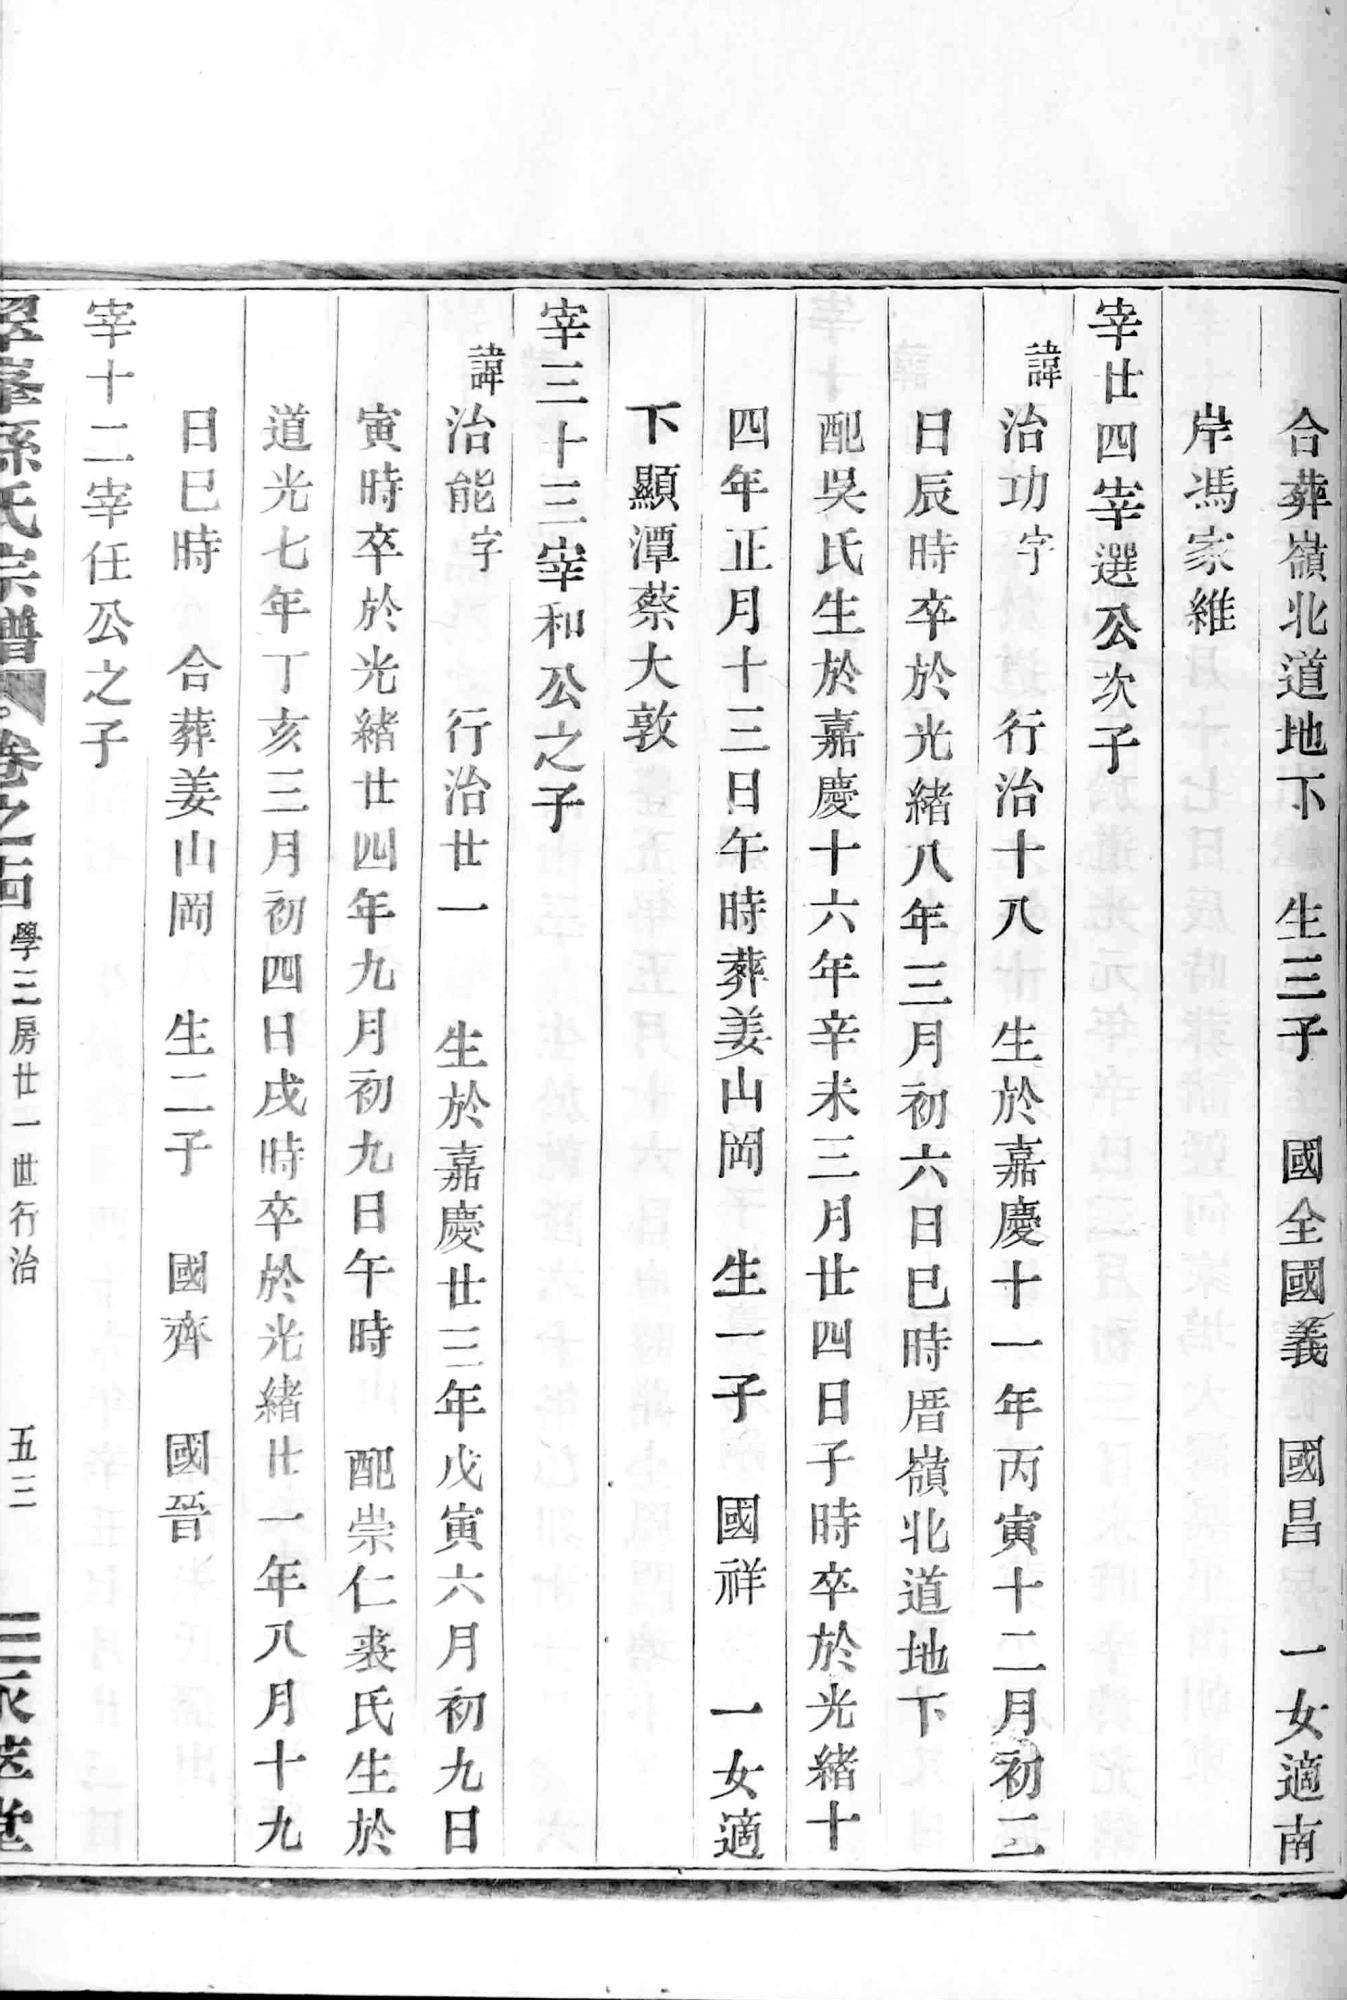 合葬嶺北道地下 生三子 國全國義 國昌 一女適南
岸馮家維
宰廿四宰選公次子
諱治功字 行治十八 生於嘉慶十一年丙寅十二月初二
日辰時卒於光緒八年三月初六日巳時厝嶺北道地下
配吳氏生於嘉慶十六年辛未三月廿四日子時卒於光緒十
四年正月十三日午時葬姜山岡 生一子 國祥 一女適
下顯潭蔡大敦
宰三十三宰和公之子
諱治能字 行治廿一 生於嘉慶廿三年戊寅六月初九日
寅時卒於光緒廿四年九月初九日午時 配崇仁裘氏生於
道光七年丁亥三月初四日戌時卒於光緒廿一年八月十九
日巳時 合葬姜山岡 生二子 國齊 國晉
宰十二宰任公之子
翠峯孫氏宗譜 卷之 學三房廿一世行治 五三 堂